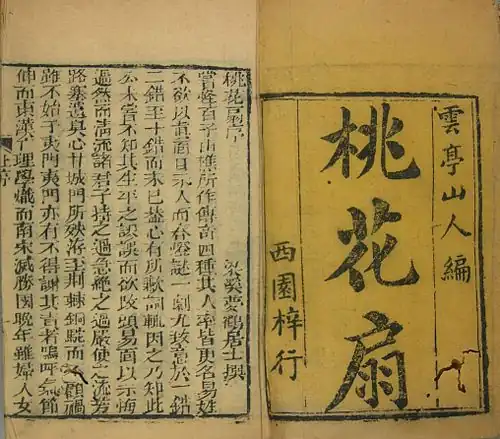 雲亭山人編
桃花扇
西園梓行
桃花扇序
梁溪夢鶴居士撰
嘗怪百子山樵所作傳奇四種其人率皆更名易姓
不欲以真面目示人而春燈謎一劇尤致意於一錯
二錯至十錯而未已蓋心有所歉詞輒因之乃知此
公未嘗不知其生平之謬誤而欲改頭易面以示悔
過然而清流諸君子持之過急絕之過嚴使之流芳
路塞遺臭心甘城門所殃洊至荊棘銅駝而顧禍
雖不始于夷門夷門亦有不得謝其責者嗚呼氣節
伸而東漢亡理學熾而南宋滅勝國晚年雖婦人女
序